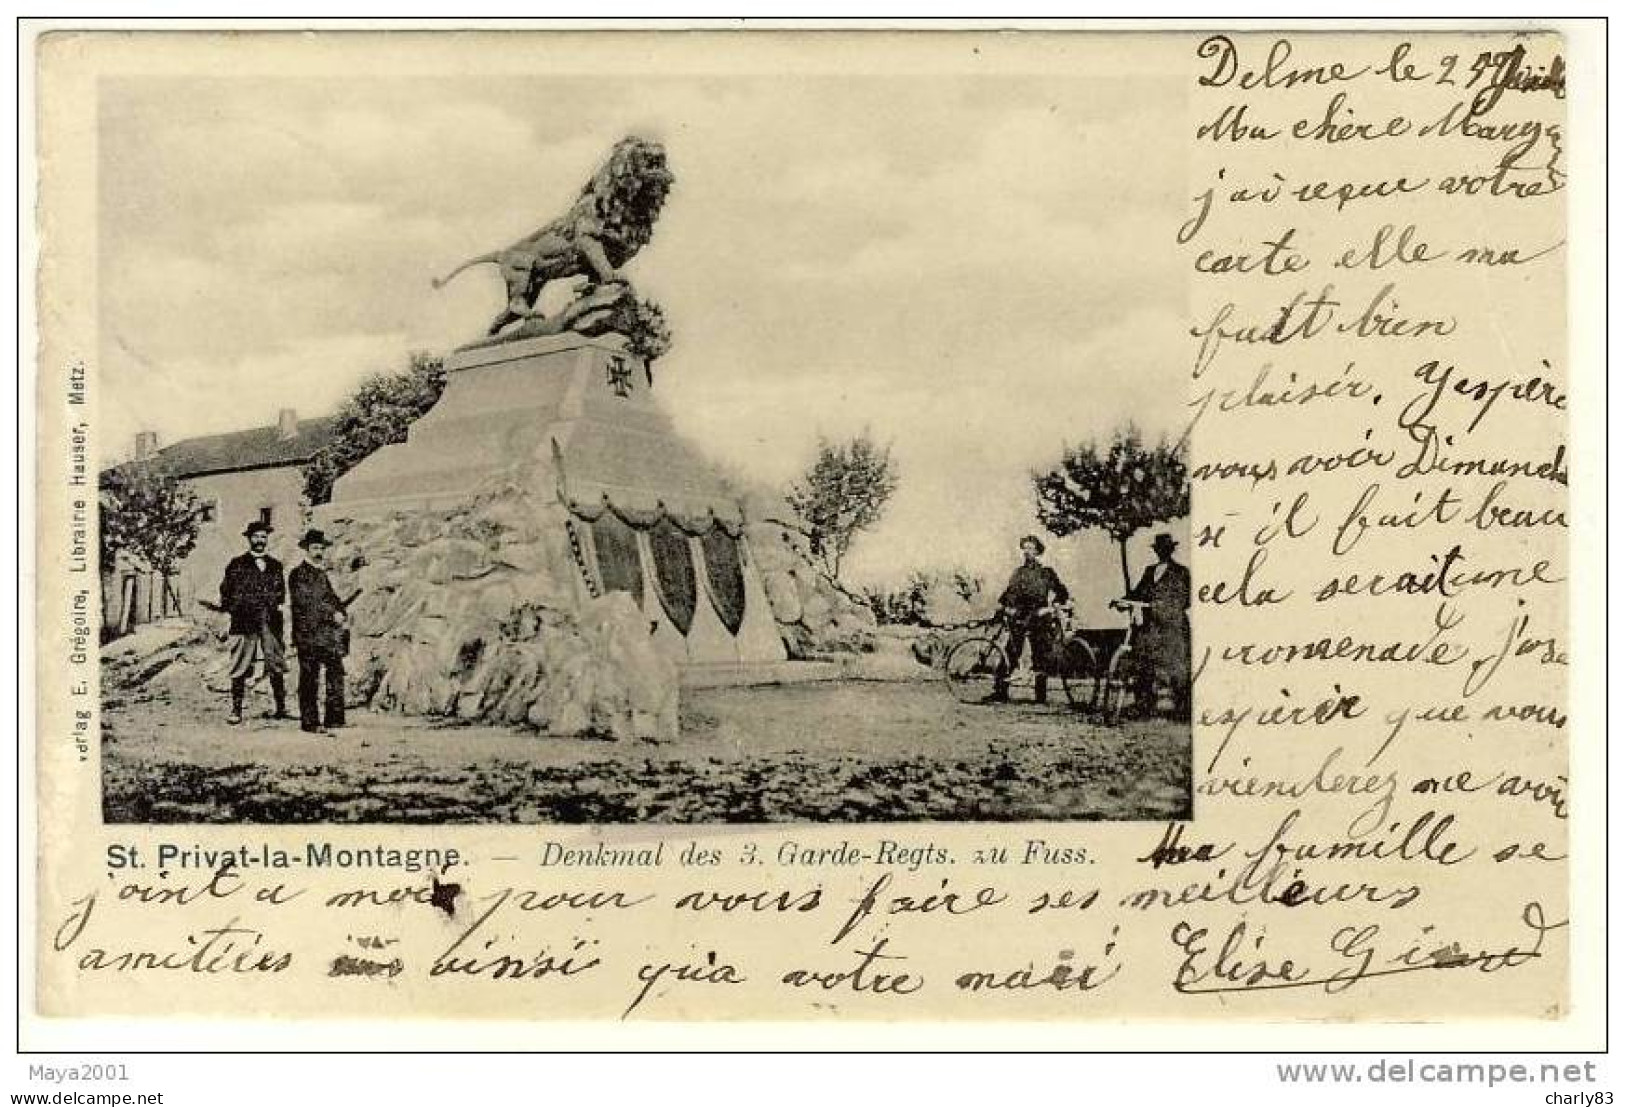 Delme le 27
Ma chère
j'ai reçue votre
carte elle ma
fait bien
plaisir. J'espère
vous voir Dimanche
si il fait beau
cela serait une
promenade. j'ose
espèrér que vous
vienderez me avoir
Ma famille se
joint a moi pour vous faire ses meilleurs
amitiées ainsi qu'a votre mari Elise Girard
St. Privat-la-Montagne. — Denkmal des 3. Garde-Regts. zu Fuss.
Verlag E. Grégoire, Librairie Hauser, Metz.
Maya2001
www.delcampe.net
charly83